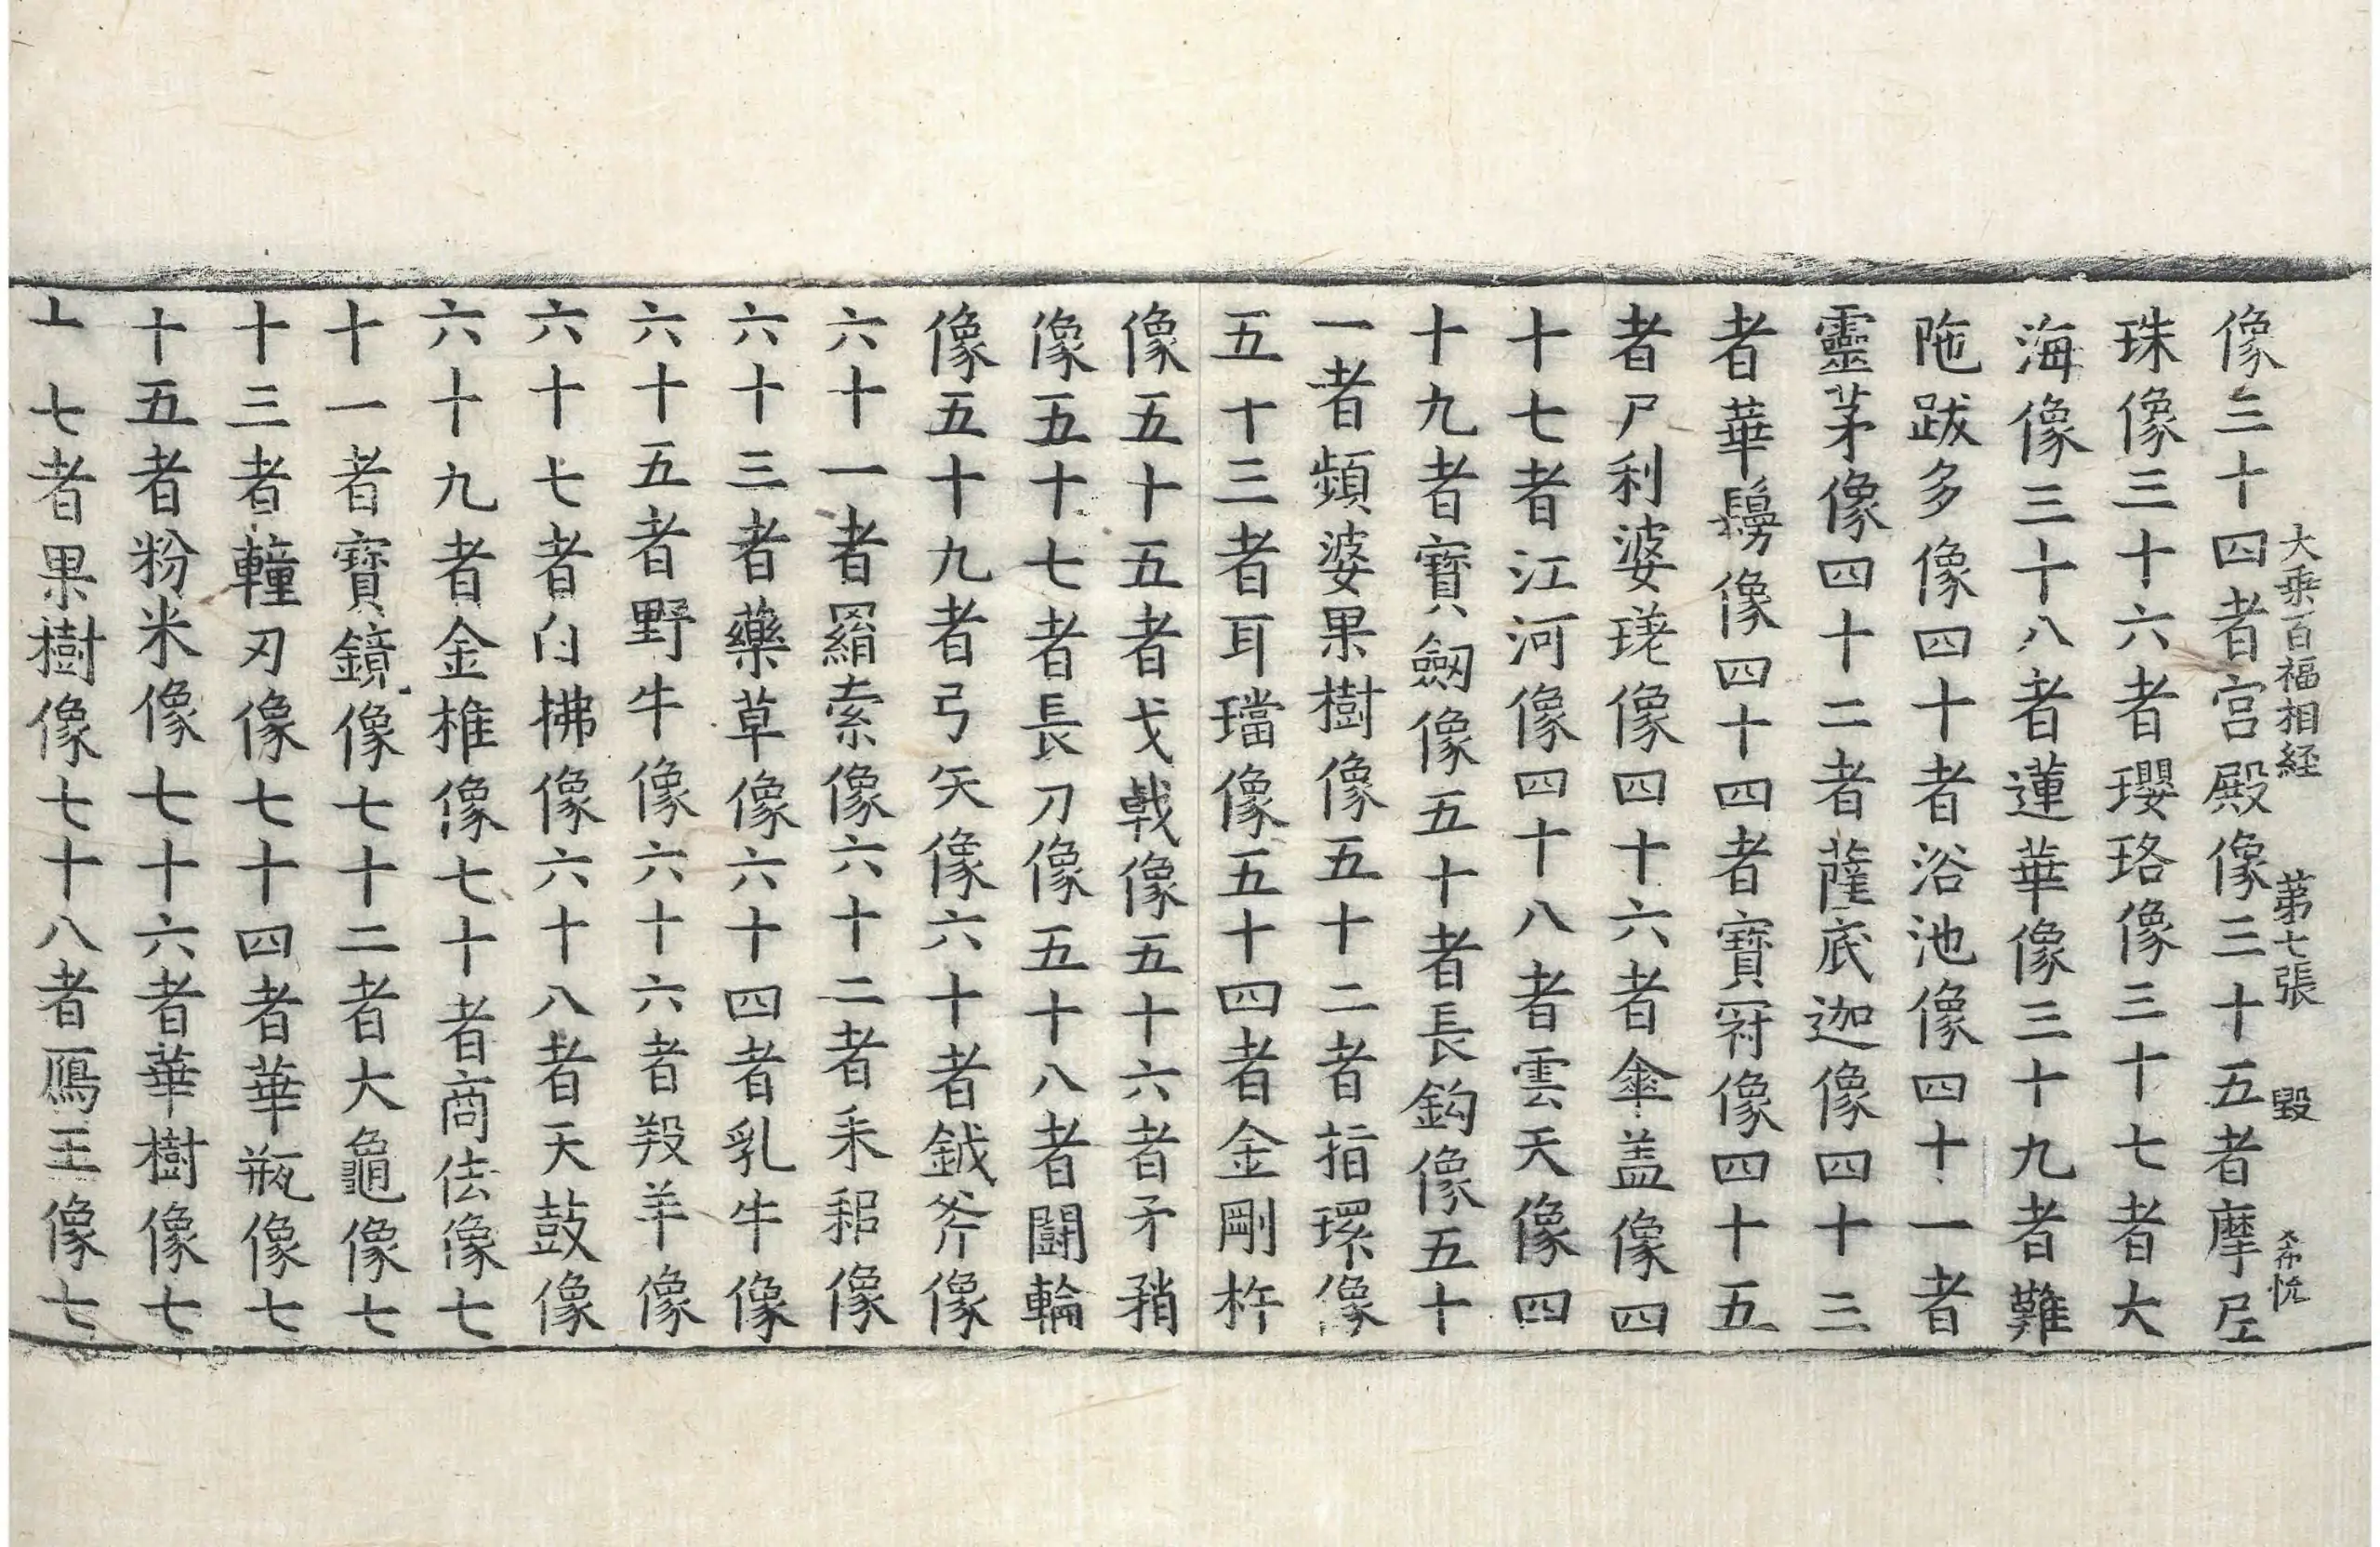 大乗百福相経 第七張 毀 希忱
像三十四者宫殿像三十五者摩尼
珠像三十六者瓔珞像三十七者大
海像三十八者蓮華像三十九者難
陁跋多像四十者浴池像四十一者
靈茅像四十二者薩底迦像四十三
者華鬘像四十四者寶冠像四十五
者尸利婆瑳像四十六者傘盖像四
十七者江河像四十八者雲天像四
十九者寶劔像五十者長鈎像五十
一者頻婆果樹像五十二者指環像
五十三者耳璫像五十四者金剛杵
像五十五者戈戟像五十六者矛矟
像五十七者長刀像五十八者闘輪
像五十九者弓矢像六十者鉞斧像
六十一者羂索像六十二者耒耜像
六十三者藥草像六十四者乳牛像
六十五者野牛像六十六者羖羊像
六十七者白拂像六十八者天鼓像
六十九者金椎像七十者商佉像七
十一者寶鏡像七十二者大龜像七
十三者轒刃像七十四者華瓶像七
十五者粉米像七十六者華樹像七
十七者果樹像七十八者鴈王像七